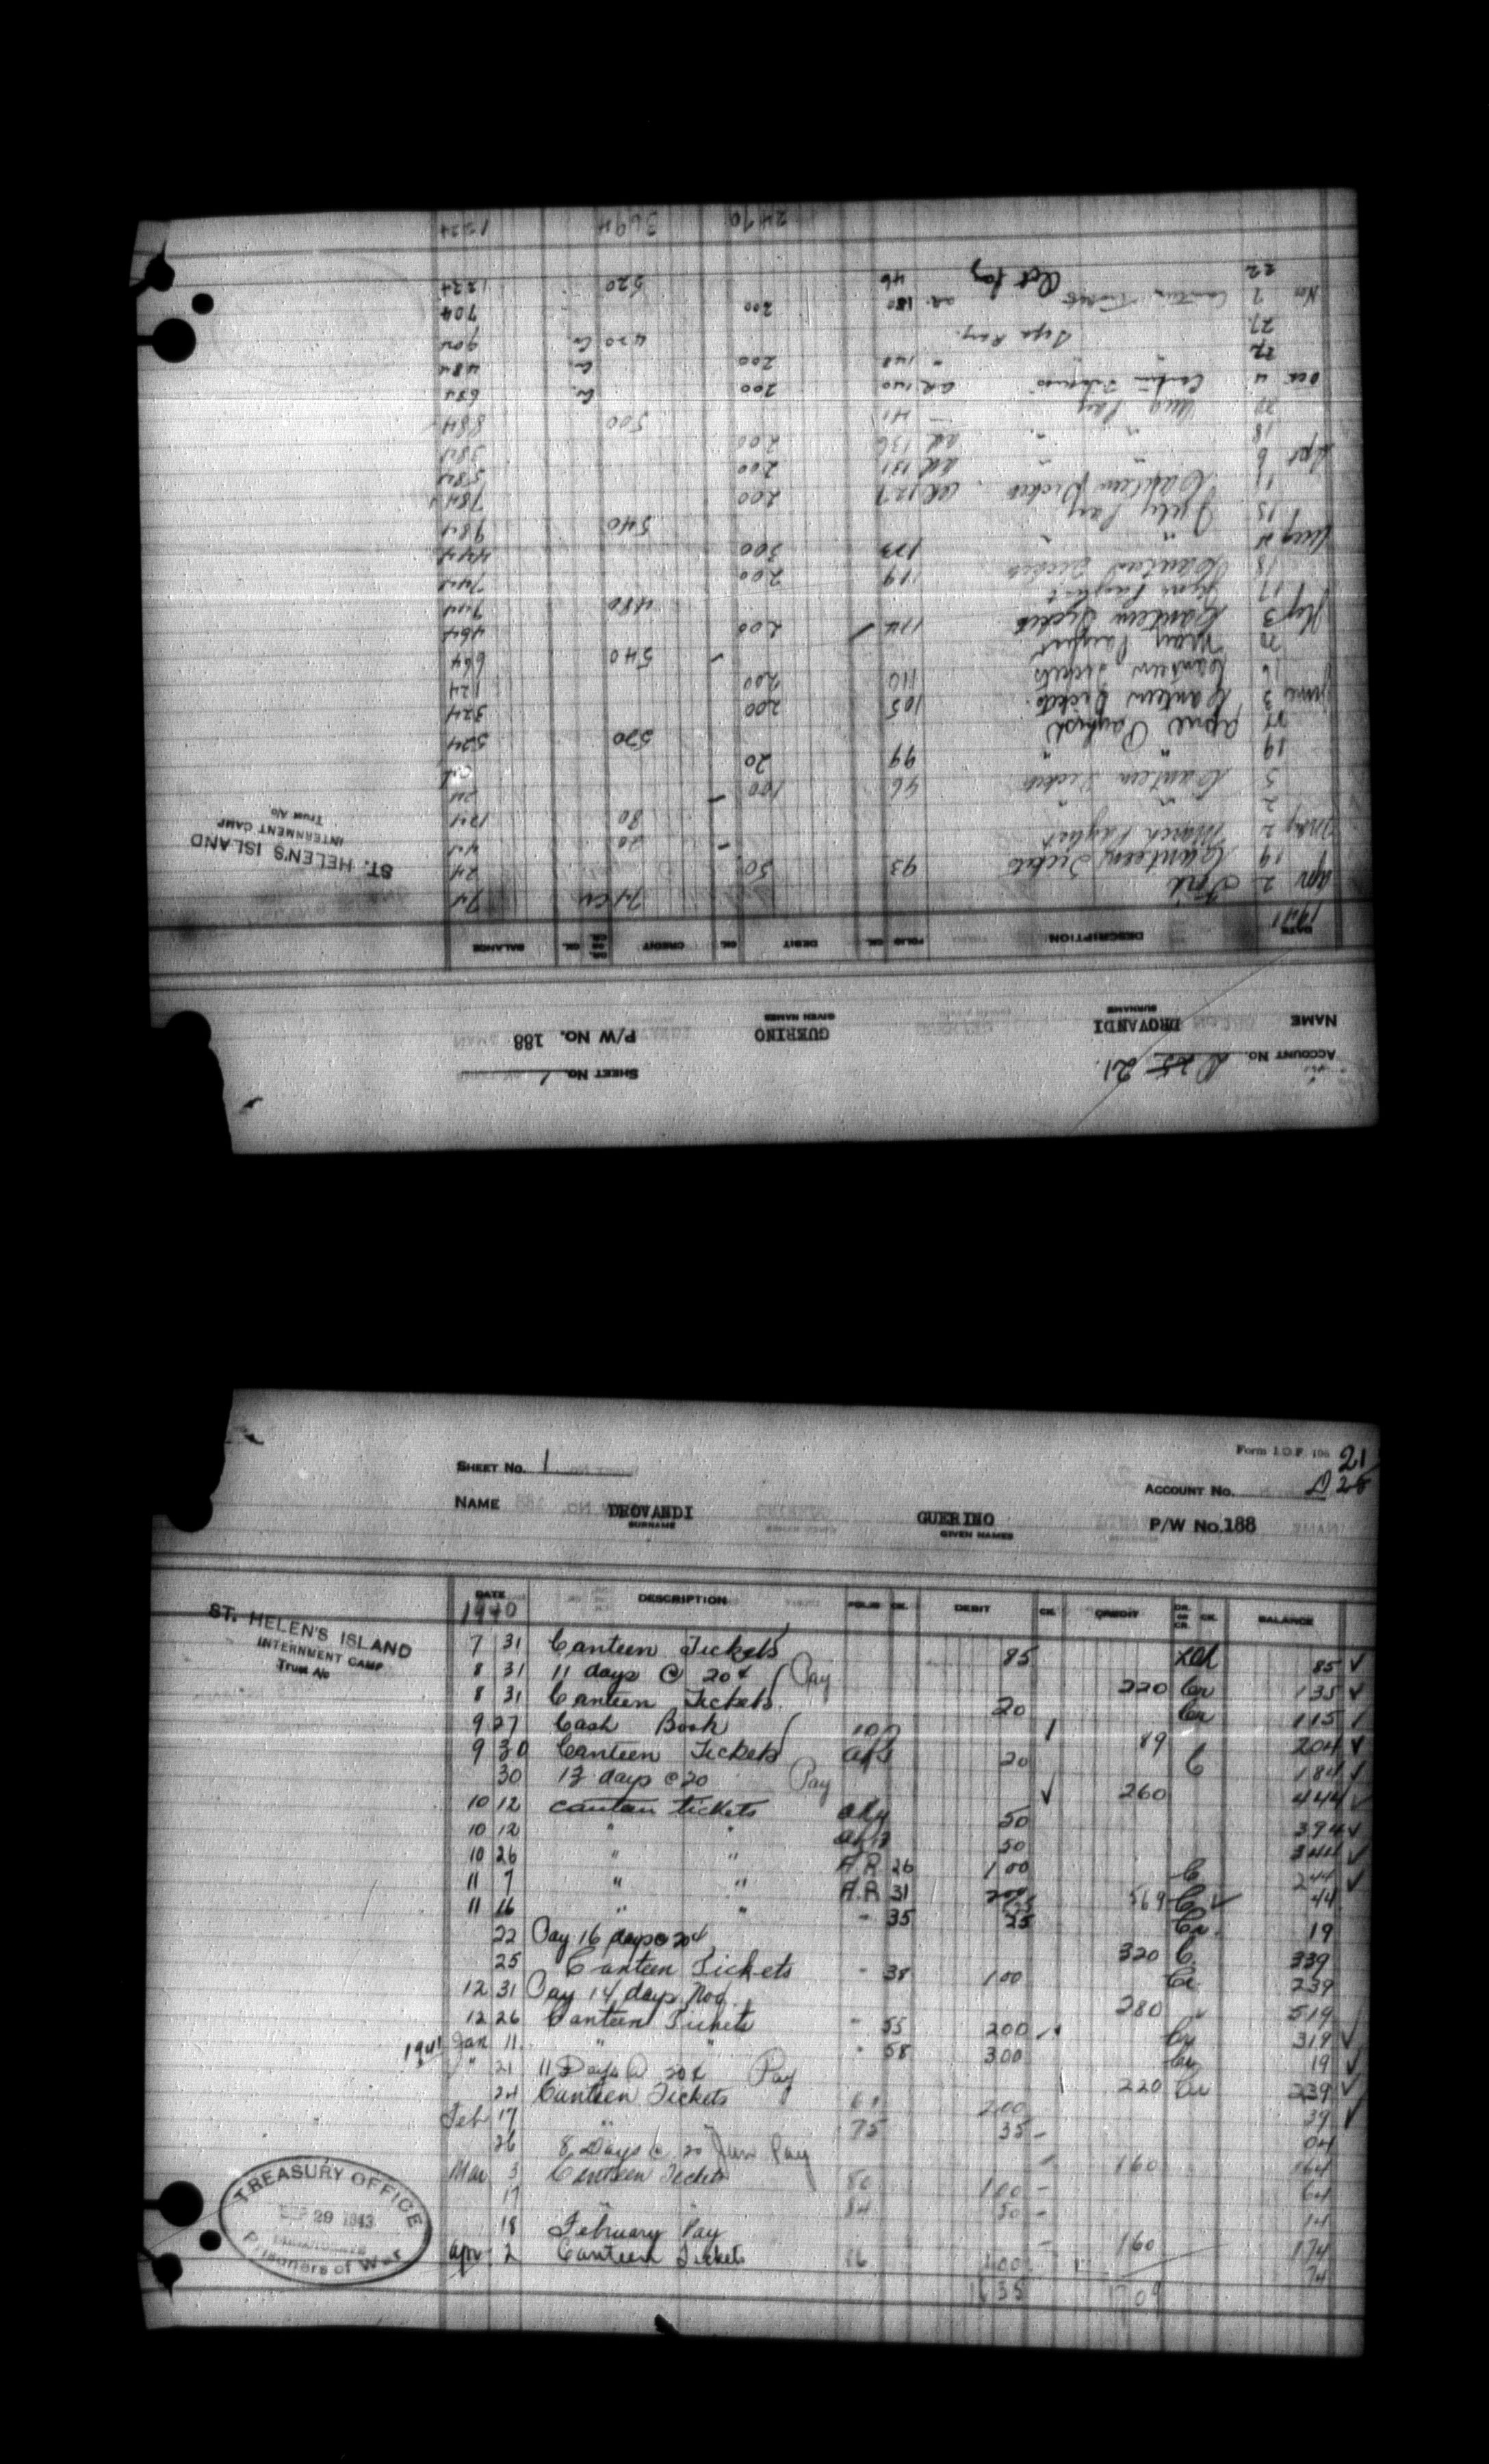 1224 3694 2470
22 Oct Pay 46 520 1224
Nov 7 Canteen Tickets AR 180 200 704
27 Sept Pay 420 Cr 904
22 " " " 148 200 Cr 484
Oct 4 Canteen Tickets AR 140 200 Cr 684
Aug Pay 141 500 884
18 " " AR 136 200 384
Sept 6 " " AR 131 200 584
11 Canteen Ticket AR 127 200 784
15 July Pay 540 984
Aug 4 " " 123 300 444
18 Canteen Tickets 119 200 744
17 June Paylist 480 944
July 3 Canteen Ticket 114 200 464
May Paylist 540 664
16 Canteen Tickets 110 200 124
June 3 Canteen Tickets 105 200 324
27 April Paylist 520 524
19 " " 99 20 04
5 Canteen Ticket 96 100 24
2 " " 80 124
May 2 March Paylist 20 44
19 Canteen Tickets 93 50 24
Apr 2 Ford 74 Cr 74
1941
DATE DESCRIPTION FOLIO CK. DEBIT CK. CREDIT DR. OR CR. CK. BALANCE
ST. HELEN'S ISLAND
INTERNMENT CAMP
Trust A/c
NAME DROVANDI GUERINO P/W No. 188
SURNAME GIVEN NAMES
ACCOUNT No. D 25 21 SHEET No. 1
Form I.O.F. 106 21
SHEET No. 1 ACCOUNT No. D 25
NAME DROVANDI GUERINO P/W No. 188
SURNAME GIVEN NAMES
DATE DESCRIPTION FOLIO CK. DEBIT CK. CREDIT DR. OR CR. CK. BALANCE
1940
ST. HELEN'S ISLAND
INTERNMENT CAMP
Trust A/c
7 31 Canteen Tickets 85 85 ✓
8 31 11 days @ 20¢ Pay 220 Cr 135 ✓
8 31 Canteen Tickets 20 Cr 115 ✓
9 27 Cash Book 89 204 ✓
9 30 Canteen Tickets 20 C 184 ✓
30 13 days @ 20 Pay ✓ 260 444 ✓
10 12 canteen tickets 50 394 ✓
10 12 " " 50 344 ✓
10 26 " " A.R 26 100 C 244 ✓
11 7 " " A.R 31 200 44
11 16 " " - 35 25 Cr. 19
22 Pay 16 days @ 20¢ 320 C 339
25 Canteen Tickets - 38 100 Cr 239
12 31 Pay 14 days Nov. 280 " 519
12 26 Canteen Tickets - 55 200 Cr 319 ✓
1941 Jan 11 " " " 58 300 Cr 19 ✓
" 21 11 Days @ 20¢ Pay 220 Cr 239 ✓
24 Canteen Tickets 61 200 39 ✓
Feb 17 " " 75 35 - 04
26 8 Days @ 20 Jan Pay 160 164
Mar 3 Canteen Tickets 80 100 - 64
17 " 84 50 - 14
18 February Pay 160 174
Apr 2 Canteen Tickets 100 74
1635 1709
TREASURY OFFICE
SEP 29 1943
Prisoners of War